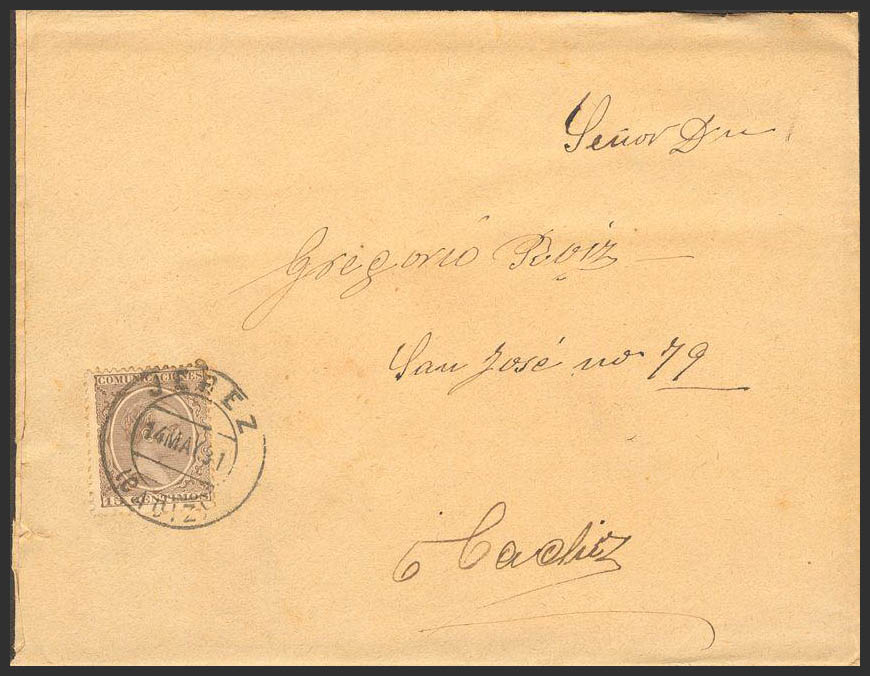 Señor Dn
Gregorio Roiz
San José no 79
Cadiz
COMUNICACIONES
15 CENTIMOS
JEREZ
14 MAY 91
(CADIZ)